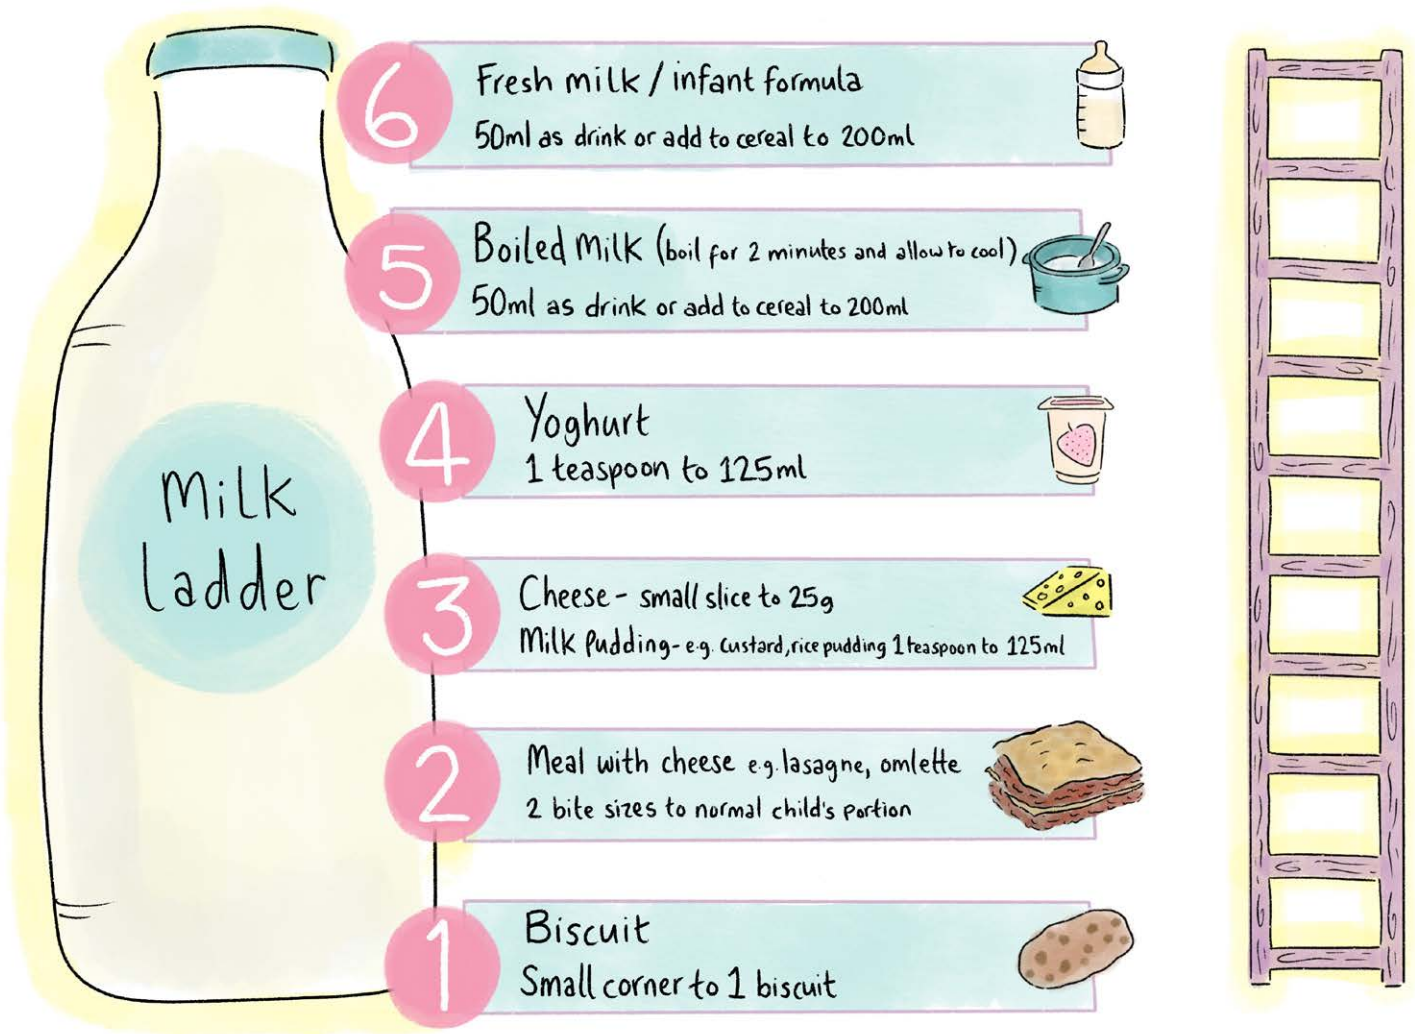 Milk
ladder
6
Fresh milk / infant formula
50ml as drink or add to cereal to 200ml
5
Boiled Milk (boil for 2 minutes and allow to cool)
50ml as drink or add to cereal to 200ml
4
Yoghurt
1 teaspoon to 125ml
3
Cheese - small slice to 25g
Milk Pudding - e.g. Custard, rice pudding 1 teaspoon to 125ml
2
Meal with cheese e.g. lasagne, omlette
2 bite sizes to normal child's portion
1
Biscuit
Small corner to 1 biscuit